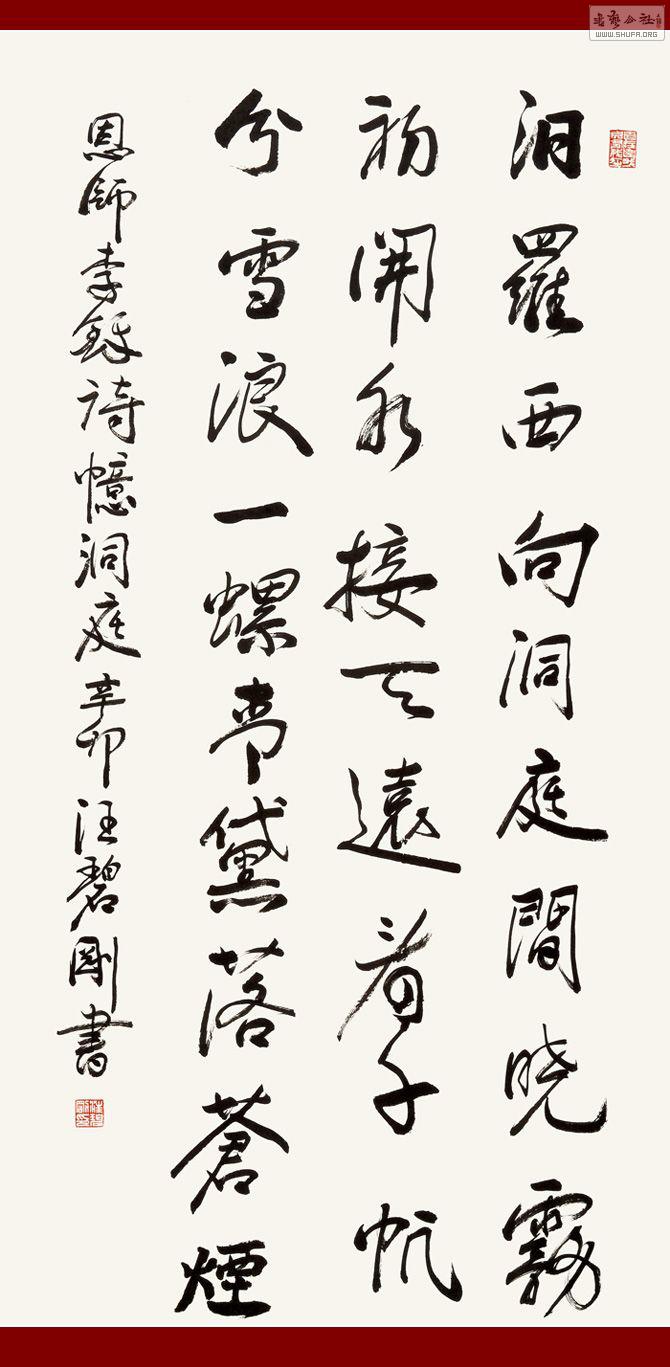 汨羅西向洞庭間晓霧
初開水接天遠看千帆
分雪浪一螺青黛落蒼煙
恩師李鐸詩憶洞庭辛卯汪碧剛書
書藝公社
WWW.SHUFA.ORG